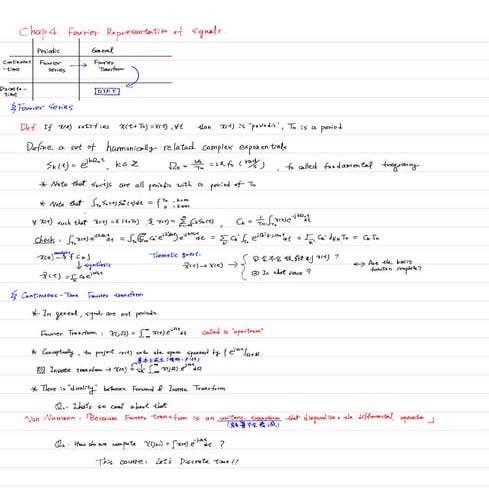 Chap 4. Fourier Representation of signals.
Periodic General
Continuous-time Fourier series → Fourier Transform
Discrete-time DTFT
§ Fourier Series
Def. If x(t) satisfies x(t+T₀)=x(t), ∀t then x(t) is "periodic", T₀ is a period
Define a set of harmonically related complex exponentials
Sₖ(t) = e^{jkΩ₀t}, k∈Z Ω₀ = 2π/T₀ = 2πf₀ (rad/s) f₀ called fundamental frequency
* Note that Sₖ(t)s are all periodic with a period of T₀
* Note that ∫_{T₀} Sₖ(t)Sₘ*(t)dt = { T₀ , k=m
0 , k≠m
∀ x(t) such that x(t)=x(t+T₀)
check:
x(t) analysis → {Cₖ}
↓ synthesis
Theoretic Quest.
x̂(t) → x(t)
② In what case?
↔ Are the basis function complete?
§ Continuous-Time Fourier transform
* In general, signal are not periodic
Fourier Transform : X(jΩ) = ∫_{-∞}^{∞} x(t) e^{-jΩt} dt called a "spectrum"
* Conceptually, to project x(t) onto the space spanned by {e^{jΩt}}_{Ω∈R}
Inverse transform → x(t) = 1/2π ∫_{-∞}^{∞} X(jΩ) e^{jΩt} dΩ
* There is "duality" between Forward & Inverse Transform
Q₁: What's so cool about that
Von Numann: "Because Fourier transform is an unitary transform that diagonalizes the differential operator"
Q₂: How do we compute X(jΩ) = ∫x(t) e^{-jΩt} dt ?
This course: Let's Discrete time!!